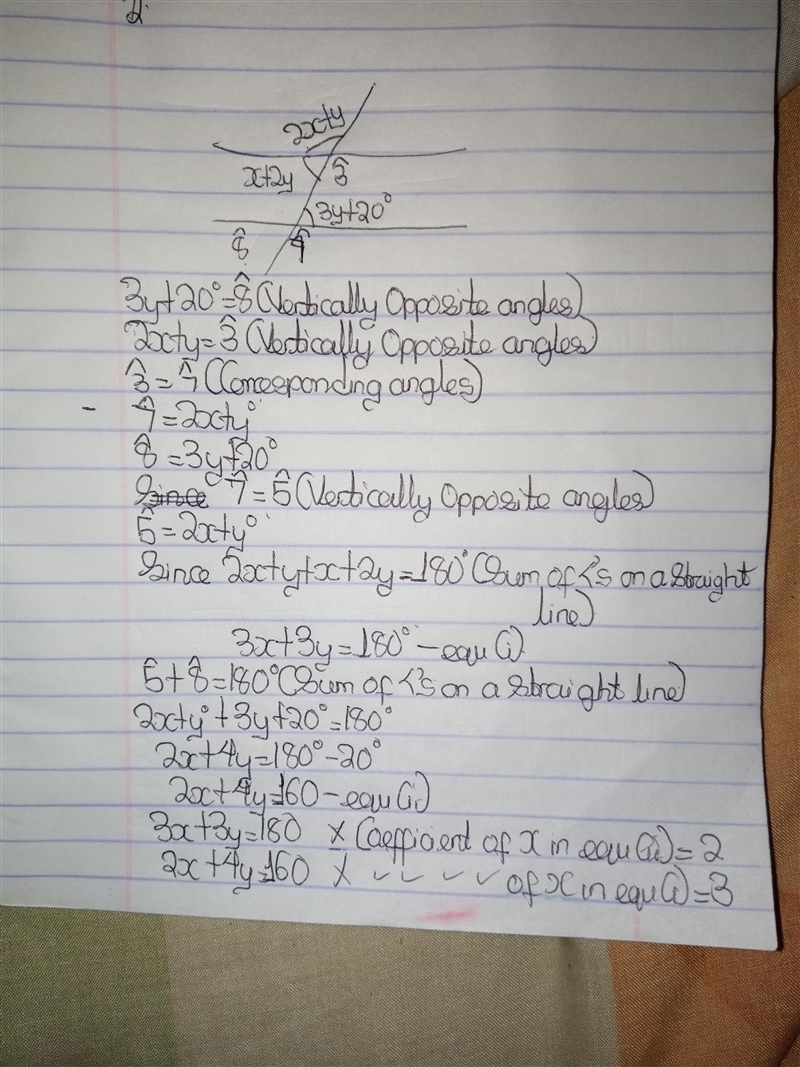 2.
2x+y
x+2y
3̂
3y+20°
8̂
7̂
3y+20°=8̂ (Vertically Opposite angles)
2x+y=3̂ (Vertically Opposite angles)
3̂=7̂ (Corresponding angles)
- 7̂=2x+y°
8̂=3y+20°
Since 7̂=5̂ (Vertically Opposite angles)
5̂=2x+y°
Since 2x+y+x+2y=180° (Sum of <'s on a straight
line)
3x+3y=180° - equ (i)
5̂+8̂=180° (Sum of <'s on a straight line)
2x+y°+3y+20°=180°
2x+4y=180°-20°
2x+4y=160 - equ (ii)
3x+3y=180 × Coefficient of x in equ (ii)=2
2x+4y=160 × ✓ ✓ ✓ ✓ of x in equ (i)=3